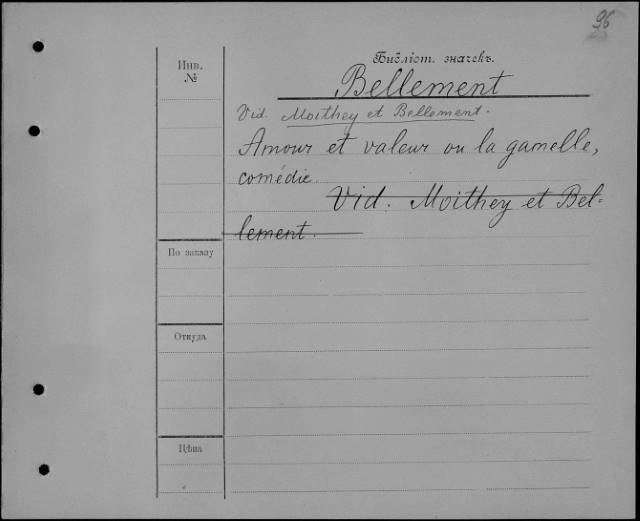 96
Инв.
№
Библіот. значекъ.
Bellement
Vid. Moithey et Bellement.
Amour et valeur ou la gamelle,
comédie.
Vid. Moithey et Bel-
lement.
По заказу
Откуда
Цѣна